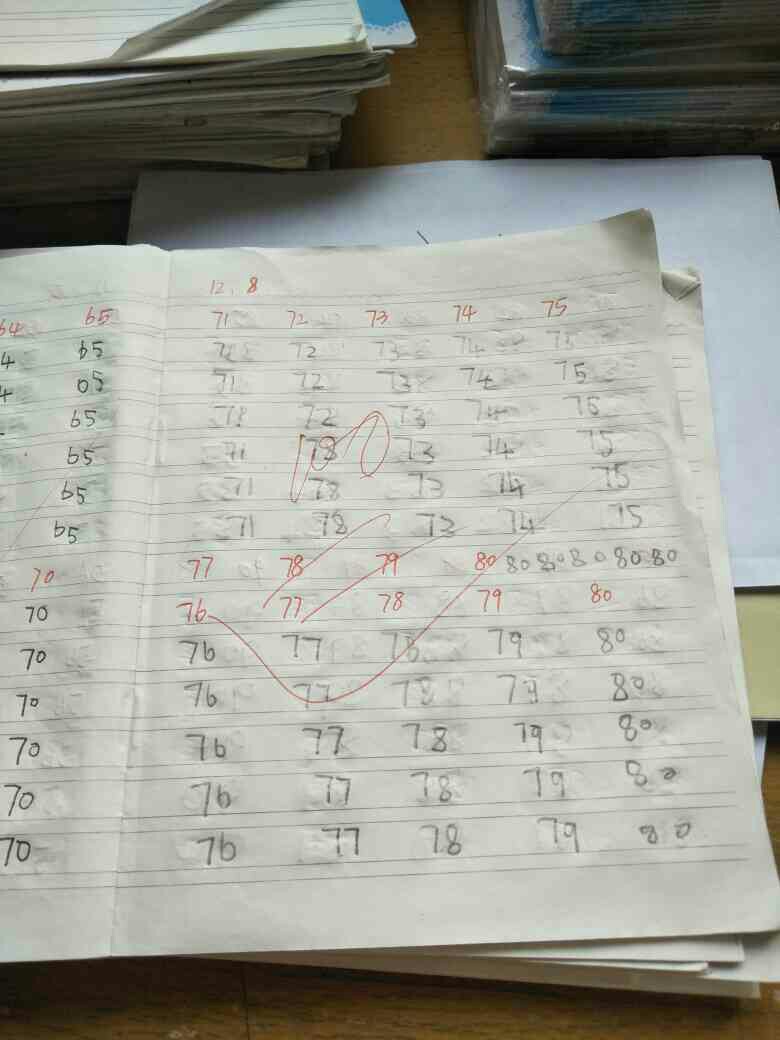 64 65
4 65
4 05
65
65
65
65
70
70
70
70
70
70
70
12. 8
71 72 73 74 75
71 72 73 74 75
71 72 73 74 75
71 72 73 74 75
71 78 73 74 75
71 78 73 74 75
71 78 73 74 75
77 78 79 80 80 80 80 80 80
76 77 78 79 80
76 77 78 79 80
76 77 78 79 80
76 77 78 79 80
76 77 78 79 80
76 77 78 79 80